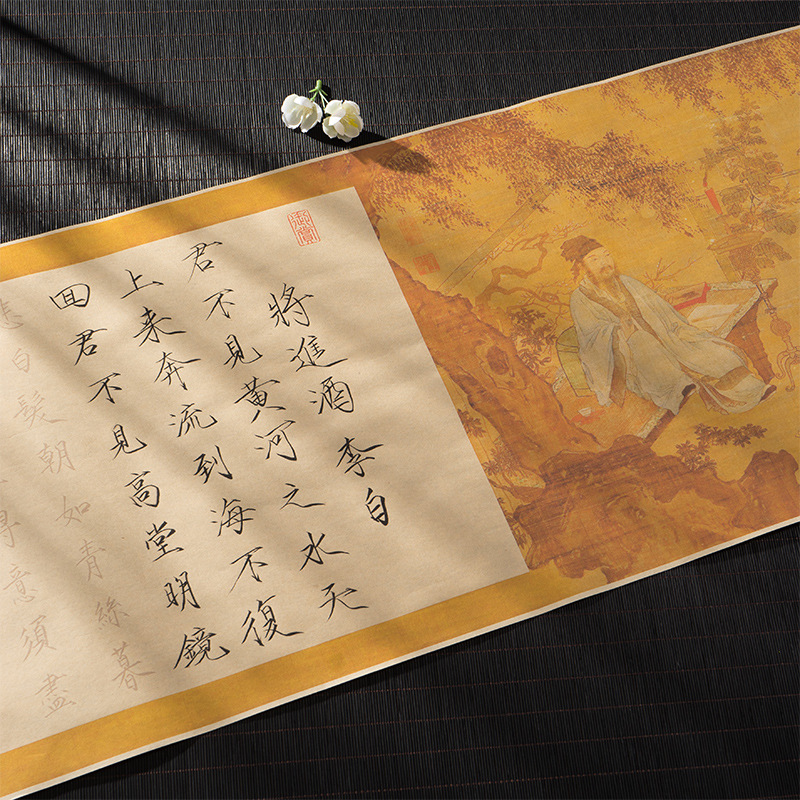 御賞
將進酒 李白
君不見黃河之水天
上来奔流到海不復
囬君不見高堂明鏡
悲白髮朝如青絲暮
得意須盡